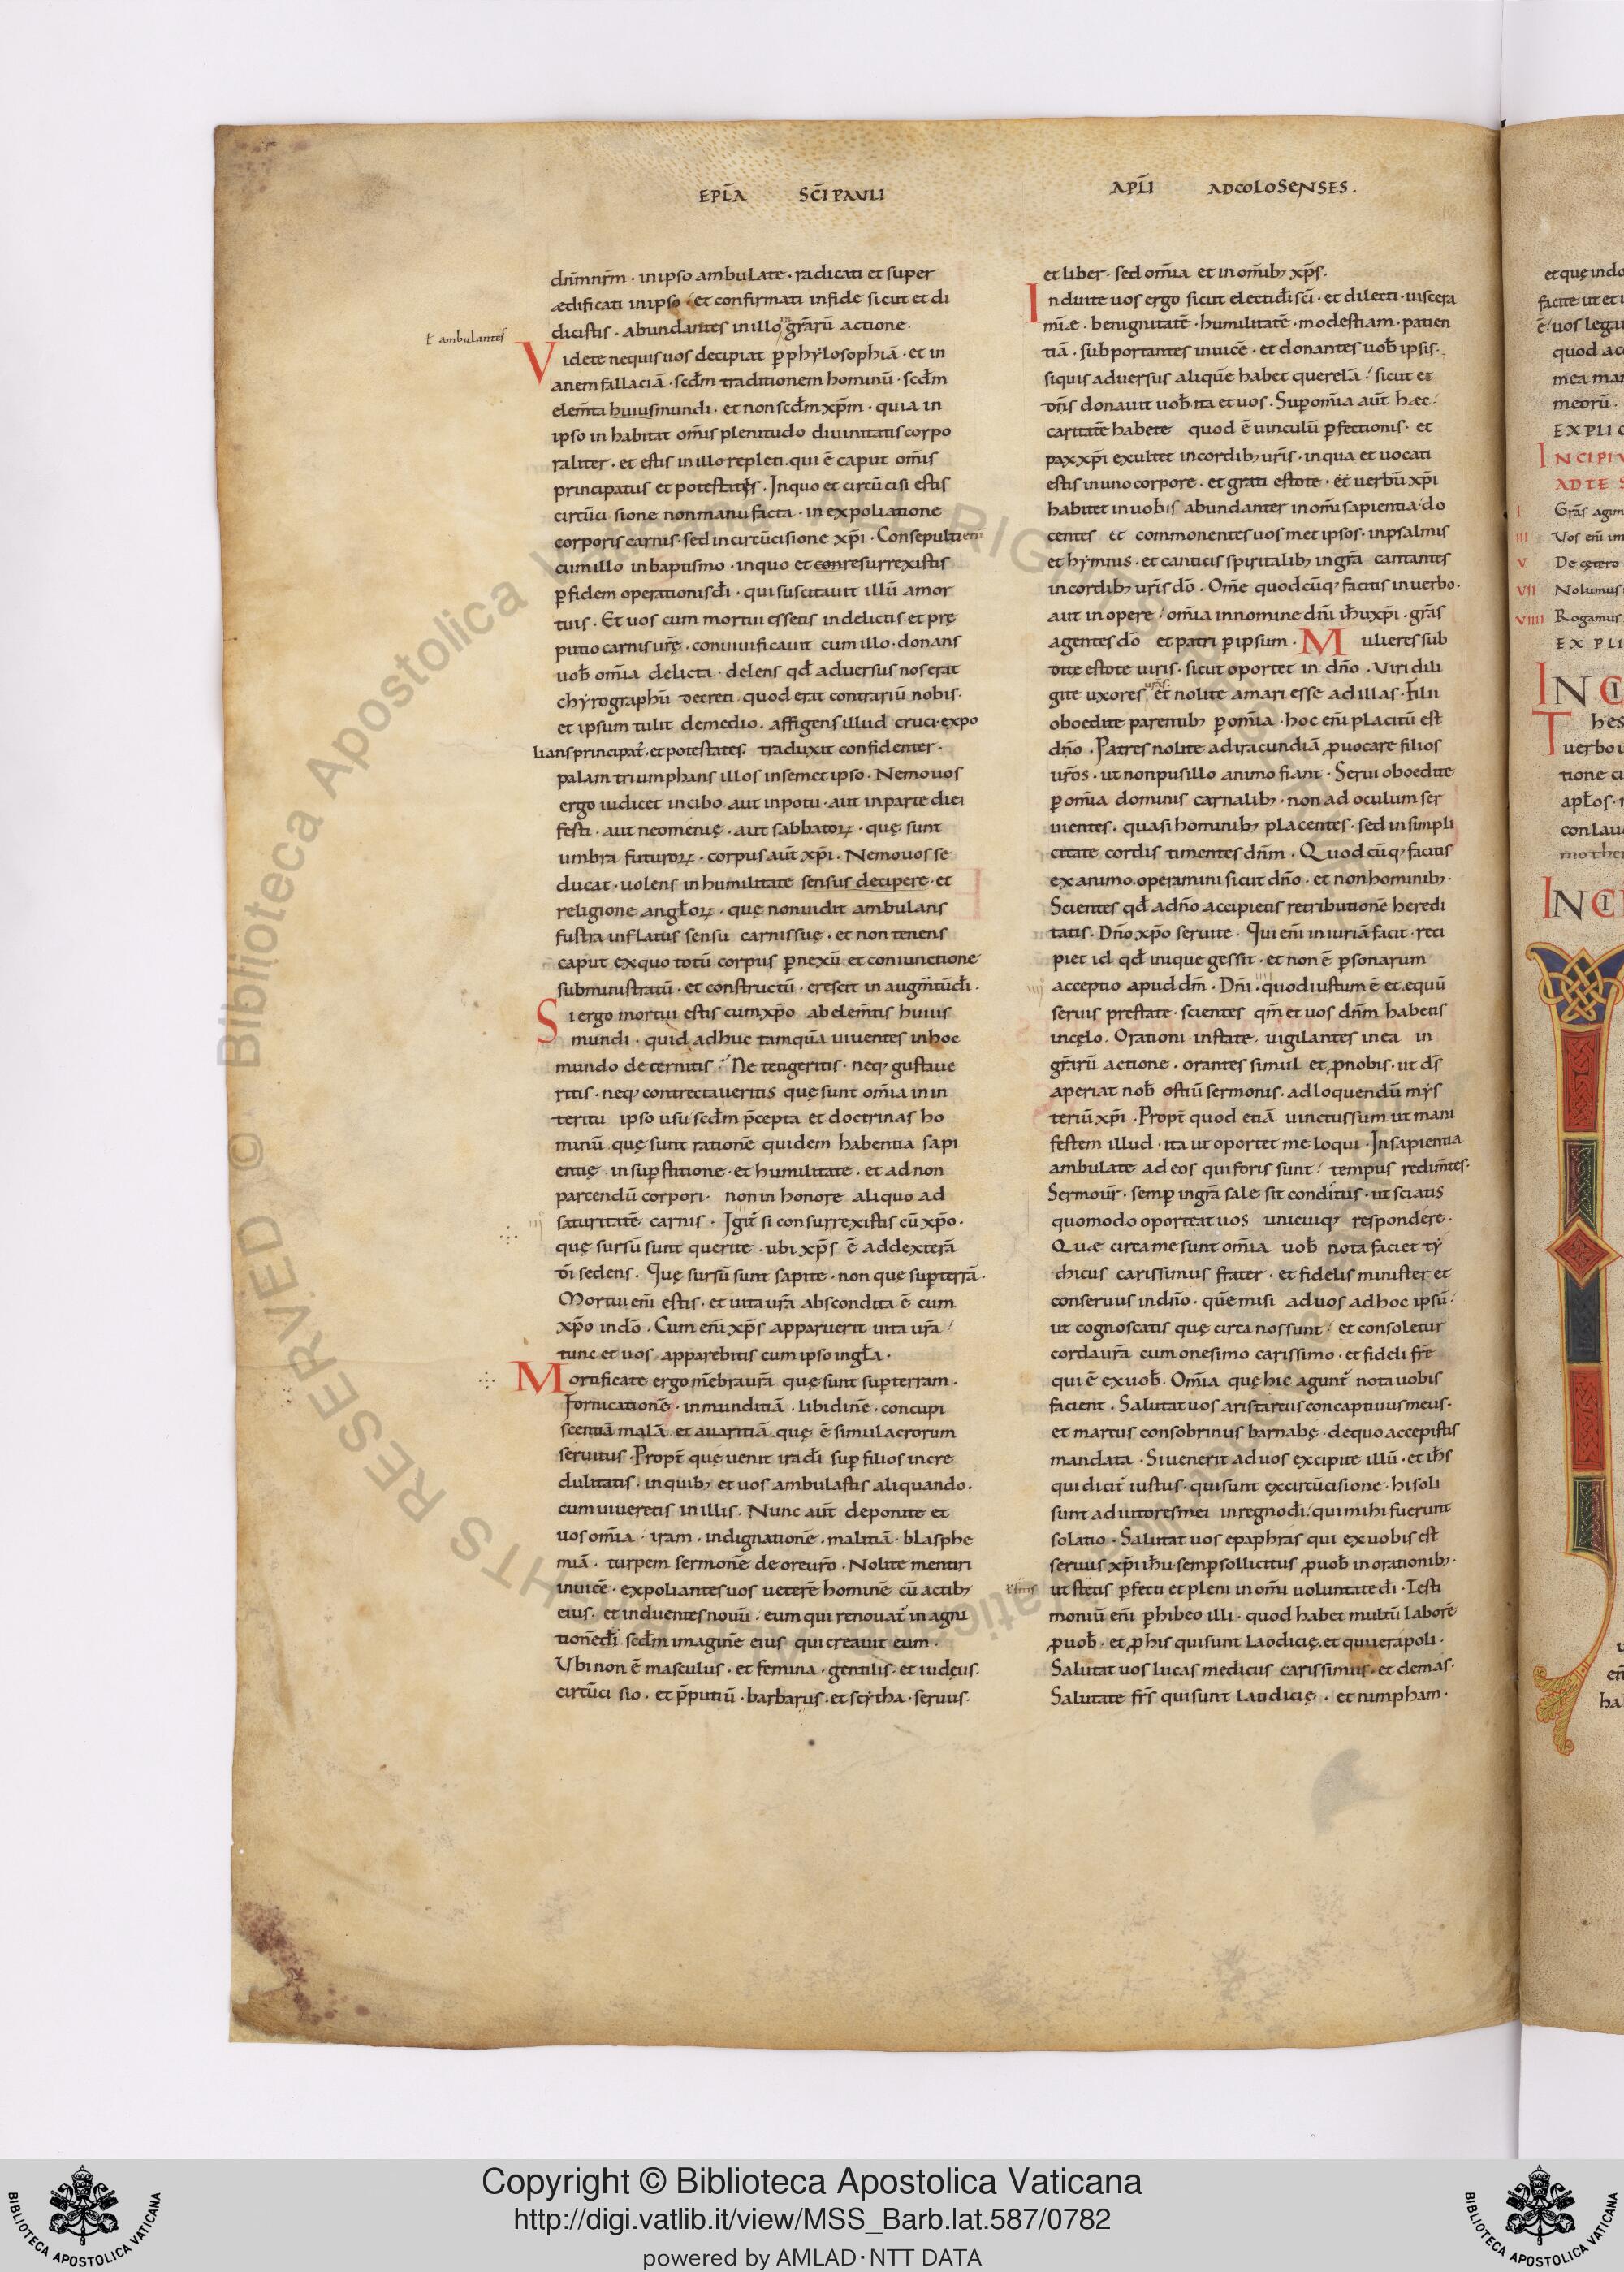 EPL̄A SC̄I PAVLI
dn̄m nr̄m · in ipso ambulate · radicati et super
ædificati in ipso · et confirmati in fide sicut et di
dicistis · abundantes in illo in gr̄arū actione ·
ł ambulantes
Videte nequis uos decipiat p̱ phylosophiā · et in
anem fallaciā · scdm̄ traditionem hominū · scdm̄
elem̄ta huius mundi · et non scdm̄ xp̄m · quia in
ipso in habitat om̄is plenitudo diuinitatis corpo
raliter · et estis in illo repleti · qui ē caput om̄is
principatus et potestatis · In quo et circūcisi estis
circūcisione non manu facta · in expoliatione
corporis carnis · sed in circūcisione xp̄i · Consepulti eni
cum illo in baptismo · in quo et conresurrexistis
p̱ fidem operationis dī · qui suscitauit illū amor
tuis · Et uos cum mortui essetis in delictis et pre̜
putio carnis ur̄e̜ · conuiuificauit cum illo · donans
uob̄ om̄ia delicta · delens qd̄ aduersus nos erat
chyrographū decreti · quod erat contrariū nobis ·
et ipsum tulit de medio · affigens illud cruci · expo
lians principat̄ · et potestates · traduxit confidenter ·
palam triumphans illos in semet ipso · Nemo uos
ergo iudicet in cibo · aut in potu · aut in parte diei
festi · aut neomenie̜ · aut sabbatoꝝ · que̜ sunt
umbra futuroꝝ · corpus aut̄ xp̄i · Nemo uos se
ducat · uolens in humilitate sensus decipere · et
religione angl̄oꝝ · que̜ non uidit ambulans
fustra inflatus sensu carnis sue̜ · et non tenens
caput ex quo totū corpus p̱ nexū et coniunctione
subministratū · et constructū · crescit in augm̄tū dī ·
Si ergo mortui estis cum xp̄o ab elem̄tis huius
mundi · quid adhuc tamquā uiuentes in hoc
mundo decernitis · Ne tetigeritis · neq; gustaue
ritis · neq; contrectaueritis que̜ sunt om̄ia in in
teritu ipso usu scdm̄ p̄cepta et doctrinas ho
minū que̜ sunt rationē quidem habentia sapi
entie̜ in sup̱stitione · et humilitate · et ad non
parcendū corpori · non in honore aliquo ad
saturitatē carnis · Igit̄ si consurrexistis cū xp̄o ·
que̜ sursū sunt querite · ubi xp̄s ē ad dexterā
dī sedens · Que̜ sursū sunt sapite · non que̜ sup̱ terrā ·
Mortui eni̅ estis · et uita ur̄a abscondita ē cum
xp̄o in dō · Cum eni̅ xp̄s apparuerit uita ur̄a
tunc et uos apparebitis cum ipso in gl̄a ·
Mortificate ergo m̄ebra ur̄a que̜ sunt sup̱ terram ·
fornicationē · inmunditiā · libidinē · concupi
scentiā malā et auaritiā que̜ ē simulacrorum
seruitus · Propt̄ que̜ uenit ira dī sup̱ filios incre
dulitatis · in quib; et uos ambulastis aliquando ·
cum uiueretis in illis · Nunc aut̄ deponite et
uos om̄ia · iram · indignationē · malitiā · blasphe
miā · turpem sermonē de ore ur̄o · Nolite mentiri
inuicē · expoliantes uos ueterē hominē cū actib;
eius · et induentes nouū · eum qui renouat̄ in agni
tionē dī scdm̄ imaginē eius qui creauit eum ·
Vbi non ē masculus · et femina · gentilis · et iude̜us ·
circūcisio · et p̄putiū · barbarus · et scytha · seruus ·
APL̄I AD COLOSENSES ·
et liber · sed om̄ia et in om̄ib; xp̄s ·
Induite uos ergo sicut electi dī sc̄i · et dilecti · uiscera
mi̅e · benignitatē · humilitatē · modestiam · patien
tiā · subportantes inuicē · et donantes uob̄ ipsis ·
siquis aduersus aliquē habet querelā · sicut et
dn̄s donauit uob̄ ita et uos · Sup̱ om̄ia aut̄ hæc
caritatē habete quod ē uinculū p̱fectionis · et
pax xp̄i exultet in cordib; ur̄is · in qua et uocati
estis in uno corpore · et grati estote · et uerbū xp̄i
habitet in uobis abundanter in om̄i sapientia · do
centes et commonentes uos met ipsos · in psalmis
et hymnis · et canticis spiritalib; in gr̄a cantantes
in cordib; ur̄is dō · Om̄e quodcūq; facitis in uerbo ·
aut in opere · om̄ia in nomine dn̄i ih̄u xp̄i · gr̄as
agentes dō et patri p̱ ipsum · Mulieres sub
dite estote uiris · sicut oportet in dn̄o · Viri dili
gite uxores uras · et nolite amari esse ad illas · Filii
oboedite parentib; p̱ om̄ia · hoc eni̅ placitū est
dn̄o · Patres nolite ad iracundiā ꝓuocare filios
ur̄os · ut non pusillo animo fiant · Serui oboedite
p̱ om̄ia dominis carnalib; · non ad oculum ser
uientes · quasi hominib; placentes · sed in simpli
citate cordis timentes dn̄m · Quodcūq; facitis
ex animo operamini sicut dn̄o · et non hominib; ·
Scientes qd̄ a dn̄o accipietis retributionē heredi
tatis · Dn̄o xp̄o seruite · Qui eni̅ iniuriā facit · reci
piet id qd̄ inique gessit · et non ē p̱sonarum
acceptio apud dm̄ · Dn̄i · quod iustum ē et equū
seruis prestate · scientes qm̄ et uos dn̄m habetis
in ce̜lo · Orationi instate · uigilantes in ea in
gr̄arū actione · orantes simul et ꝓ nobis · ut ds̄
aperiat nob̄ ostiū sermonis · ad loquendū mys
teriū xp̄i · Propt̄ quod etiā uinctus sum ut mani
festem illud · ita ut oportet me loqui · In sapientia
ambulate ad eos qui foris sunt · tempus redim̄tes ·
Sermo ur̄ · semp̱ in gr̄a sale sit conditus · ut sciatis
quomodo oporteat uos unicuiq; respondere ·
Quæ circa me sunt om̄ia uob̄ nota faciet ty
chicus carissimus frater · et fidelis minister et
conseruus in dn̄o · quē misi ad uos ad hoc ipsū
ut cognoscatis que̜ circa nos sunt · et consoletur
corda ur̄a cum onesimo carissimo · et fideli fr̄e
qui ē ex uob̄ · Om̄ia que̜ hic agunt̄ nota uobis
facient · Salutat uos aristarcus concaptiuus meus ·
et marcus consobrinus barnabe̜ · de quo accepistis
mandata · Si uenerit ad uos excipite illū · et ih̄s
qui dicit̄ iustus · qui sunt ex circūcisione · hi soli
sunt adiutores mei in regno dī · qui mihi fuerunt
solatio · Salutat uos epaphras qui ex uobis est
seruus xp̄i ih̄u semp̱ sollicitus ꝓ uob̄ in orationib; ·
ut stetis p̱fecti et pleni in om̄i uoluntate dī · Testi
moniū eni̅ p̱hibeo illi · quod habet multū laborē
ꝓ uob̄ · et ꝓ his qui sunt laodicie̜ · et qui ierapoli ·
Salutat uos lucas medicus carissimus · et demas ·
Salutate fr̄s qui sunt laudicie̜ · et nimpham ·
et que̜ in do
facite ut et
ē uos lega
quod acc
mea man
meorū ·
EXPLIC
INCIPIV
AD TE S
I Gr̄as agim
III Vos eni̅ im
V De ce̜tero
VII Nolumus
VIIII Rogamus
EXPLI
INCI
Thes
uerbo
tione
conlau
mother
INCI
Copyright © Biblioteca Apostolica Vaticana
http://digi.vatlib.it/view/MSS_Barb.lat.587/0782
powered by AMLAD·NTT DATA
BIBLIOTECA APOSTOLICA VATICANA
BIBLIOTECA APOSTOLICA VATICANA
© Biblioteca Apostolica Vaticana ALL RIGHTS RESERVED